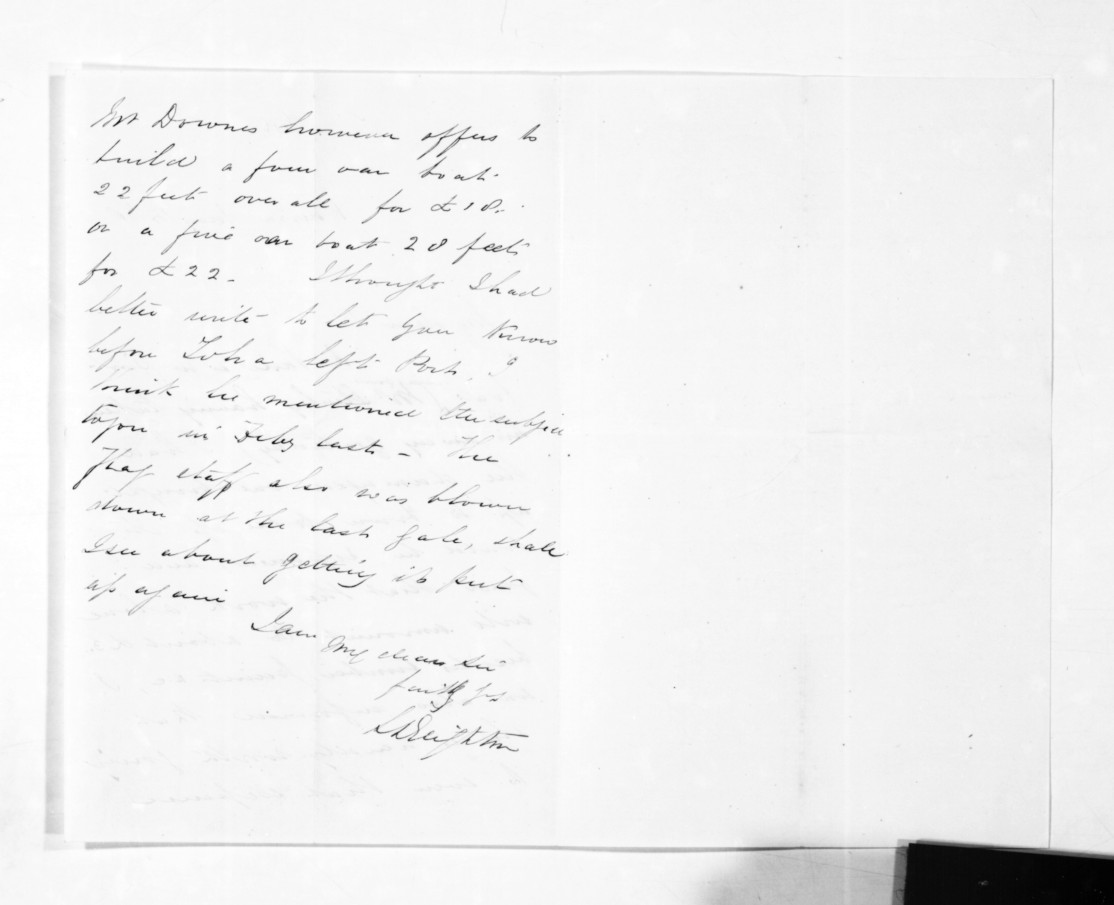 Mr Downes however offers to
build a four oar boat
22 feet over all for £18.
or a five oar boat 28 feet
for £22 - I thought I had
better write to let you know
before left Port, I
think he mentioned the subject
to you in Feby last - The
Flag staff also was blown
down at the last gale, shall
I see about getting it put
up again
I am My dear Sir
faithy yrs
S Deighton